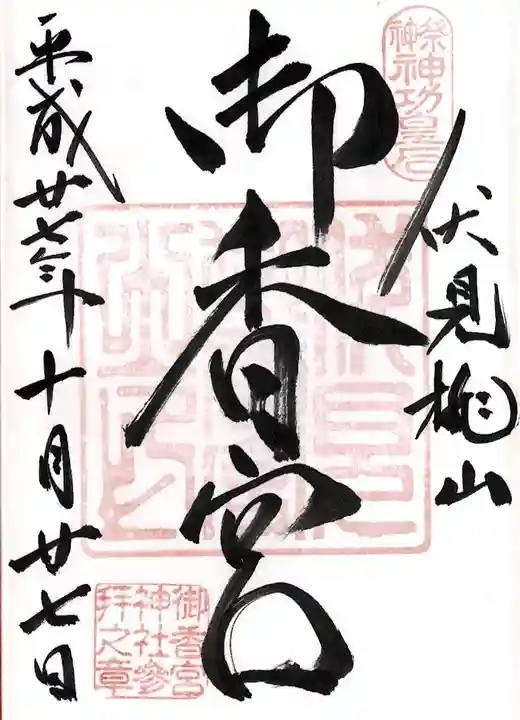 伏見桃山
祭神
神功皇后
御香宮
平成廿七年十月廿七日
御香宮
神社参
拝之章